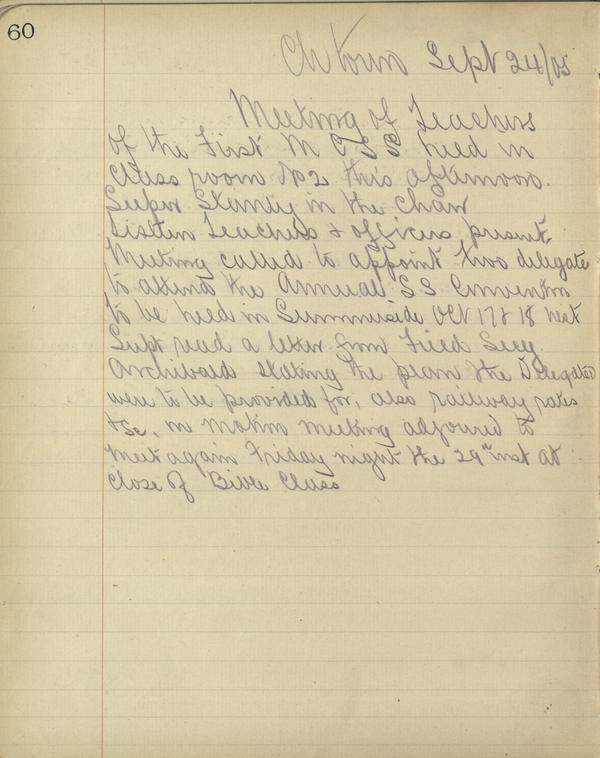 60
Ch town Sept 24/05
Meeting of Teachers
of the First M S S held in
Class room No 2 this afternoon.
Super Stanley in the Chair
Sixteen Teachers & officers present.
Meeting called to appoint two delegate
to attend the Annual S S Convention
to be held in Summerside Oct 17 & 18 next
Supt read a letter from Field Secy
Archibald stating the plan the Delegates
were to be provided for, also railway rates
&c, on motion meeting adjourned to
meet again Friday night the 29th inst at
close of Bible Class